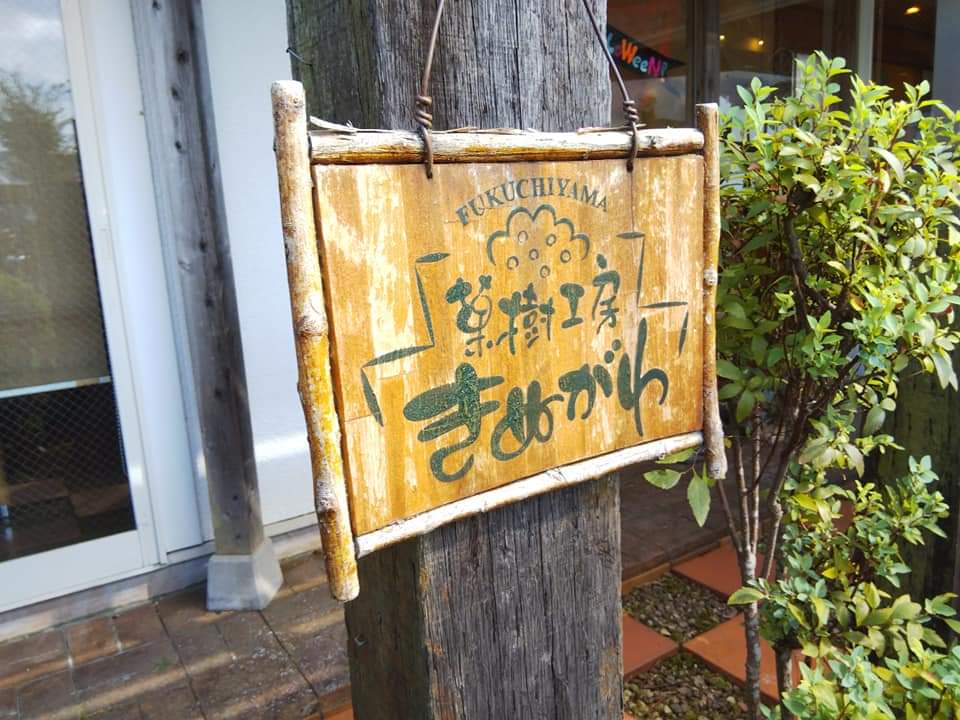 FUKUCHIYAMA
菓樹工房
きぬがわ
WeeN